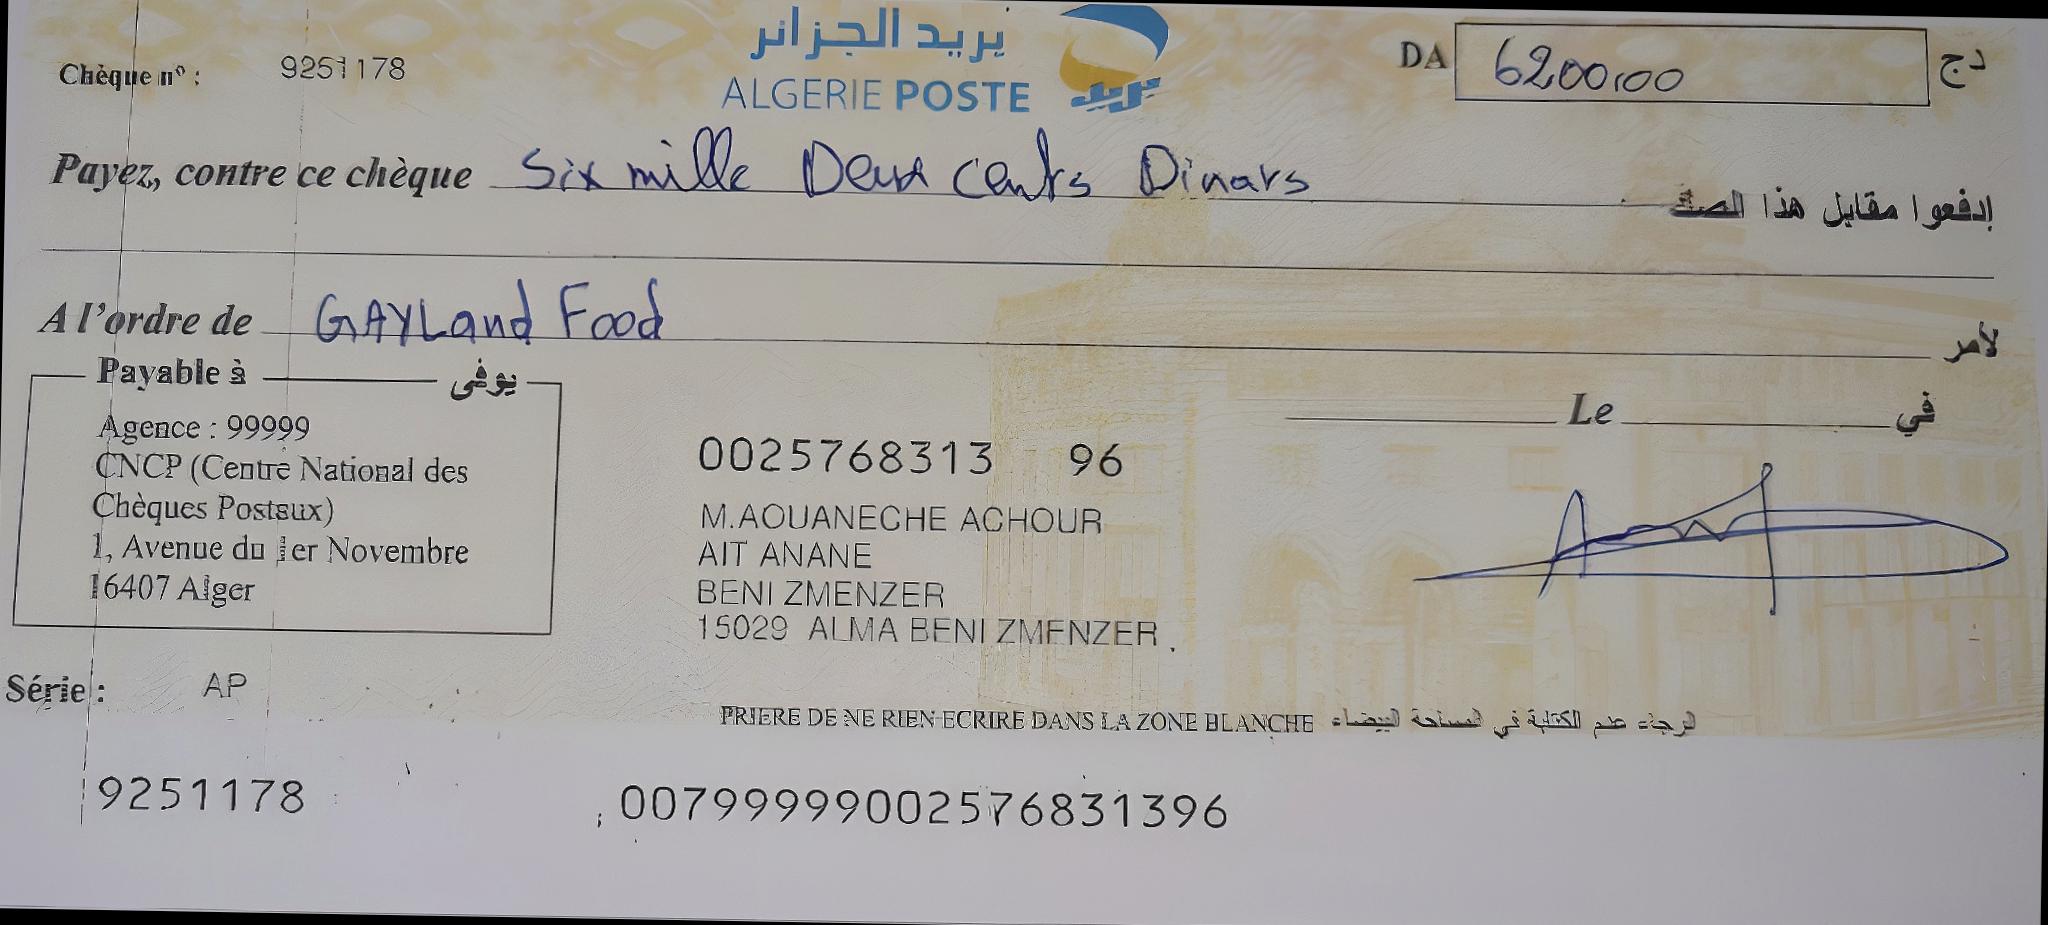 بريد الجزائر
ALGERIE POSTE
بريد
Chèque n° : 9251178
DA 6200,00 دج
Payez, contre ce chèque Six mille Deux cents Dinars إدفعوا مقابل هذا الصك
A l'ordre de GAYLand Food لأمر
Payable à يوفى
Agence : 99999
CNCP (Centre National des
Chèques Postaux)
1, Avenue du 1er Novembre
16407 Alger
Le في
0025768313 96
M.AOUANECHE ACHOUR
AIT ANANE
BENI ZMENZER
15029 ALMA BENI ZMENZER
Série : AP
PRIERE DE NE RIEN ECRIRE DANS LA ZONE BLANCHE الرجاء عدم الكتابة في المساحة البيضاء
9251178 00799999002576831396